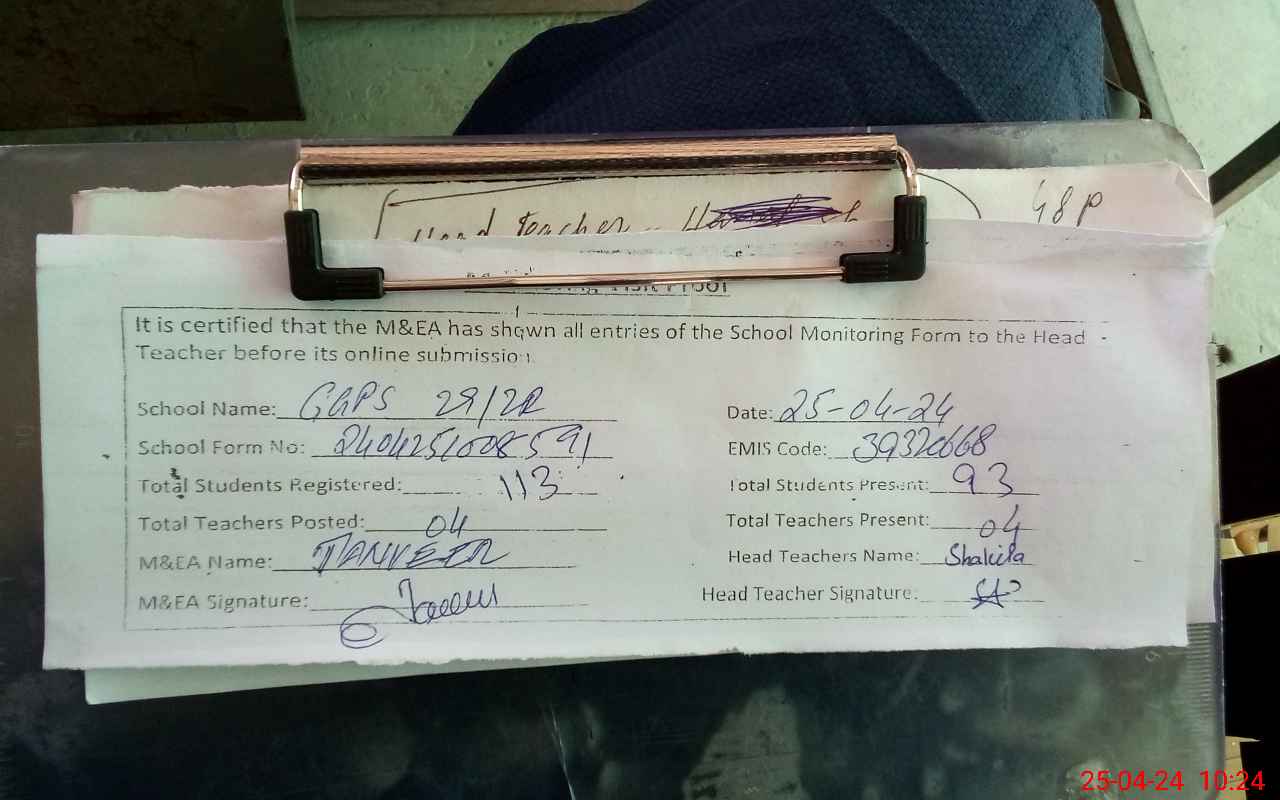 Head Teacher
48P
It is certified that the M&EA has shown all entries of the School Monitoring Form to the Head
Teacher before its online submission.
School Name: GGPS 29/2R Date: 25-04-24
School Form No: 2404251008591 EMIS Code: 39320668
Total Students Registered: 113 Total Students Present: 93
Total Teachers Posted: 04 Total Teachers Present: 04
M&EA Name: TANVEER Head Teachers Name: Shakila
M&EA Signature: Head Teacher Signature:
25-04-24 10:24